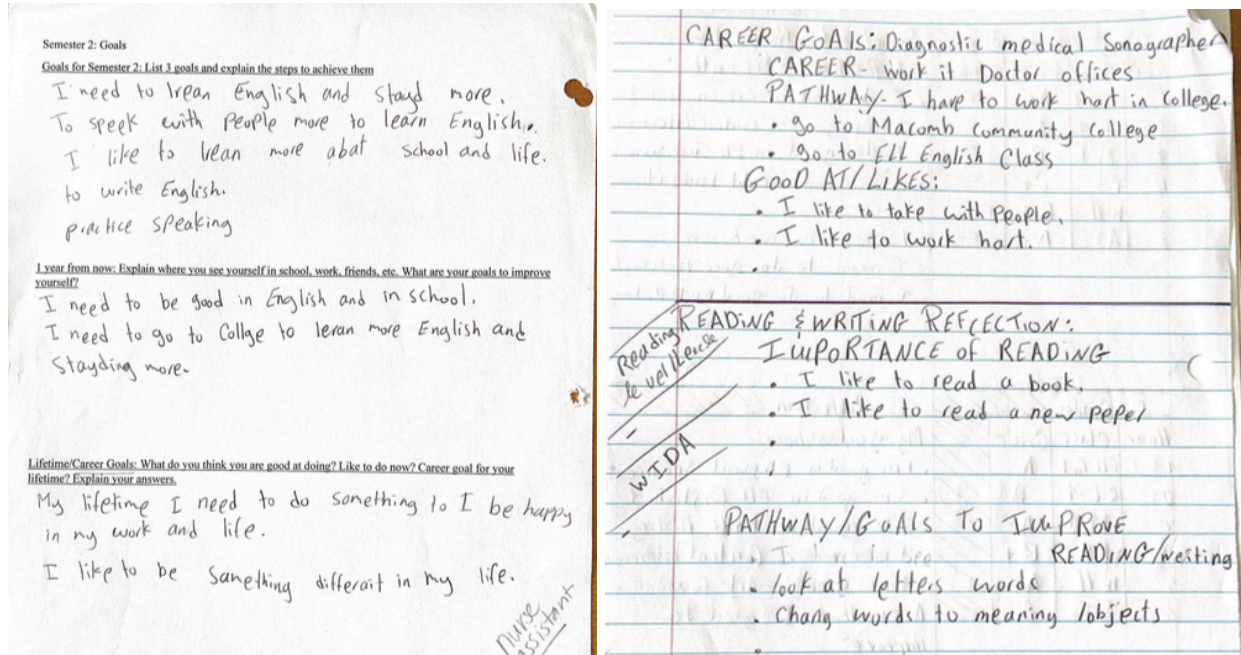 Semester 2: Goals
Goals for Semester 2: List 3 goals and explain the steps to achieve them
I need to lrean English and stayd more.
To speek with people more to learn English.
I like to lrean more abat school and life.
to write English.
practice speaking
1 year from now: Explain where you see yourself in school, work, friends, etc. What are your goals to improve
yourself?
I need to be good in English and in school.
I need to go to Collge to leran more English and
Stayding more.
Lifetime/Career Goals: What do you think you are good at doing? Like to do now? Career goal for your
lifetime? Explain your answers.
My lifetime I need to do something to I be happy
in my work and life.
I like to be samething differait in my life.
nurse
assistant
CAREER GOALS: Diagnostic medical Sonographer
CAREER- work it Doctor offices
PATHWAY- I have to work hart in College.
• go to Macomb Community College
• go to ELL English Class
GOOD AT/LIKES:
• I like to take with people.
• I like to work hart.
•
READING & WRITING REFLECTION:
Reading
level/Lexile
IMPORTANCE of READING
• I like to read a book.
• I like to read a new peper
•
WIDA
PATHWAY/GOALS TO IMPROVE
READING/writing
• look at letters words
• Chang words to meaning /objects
•